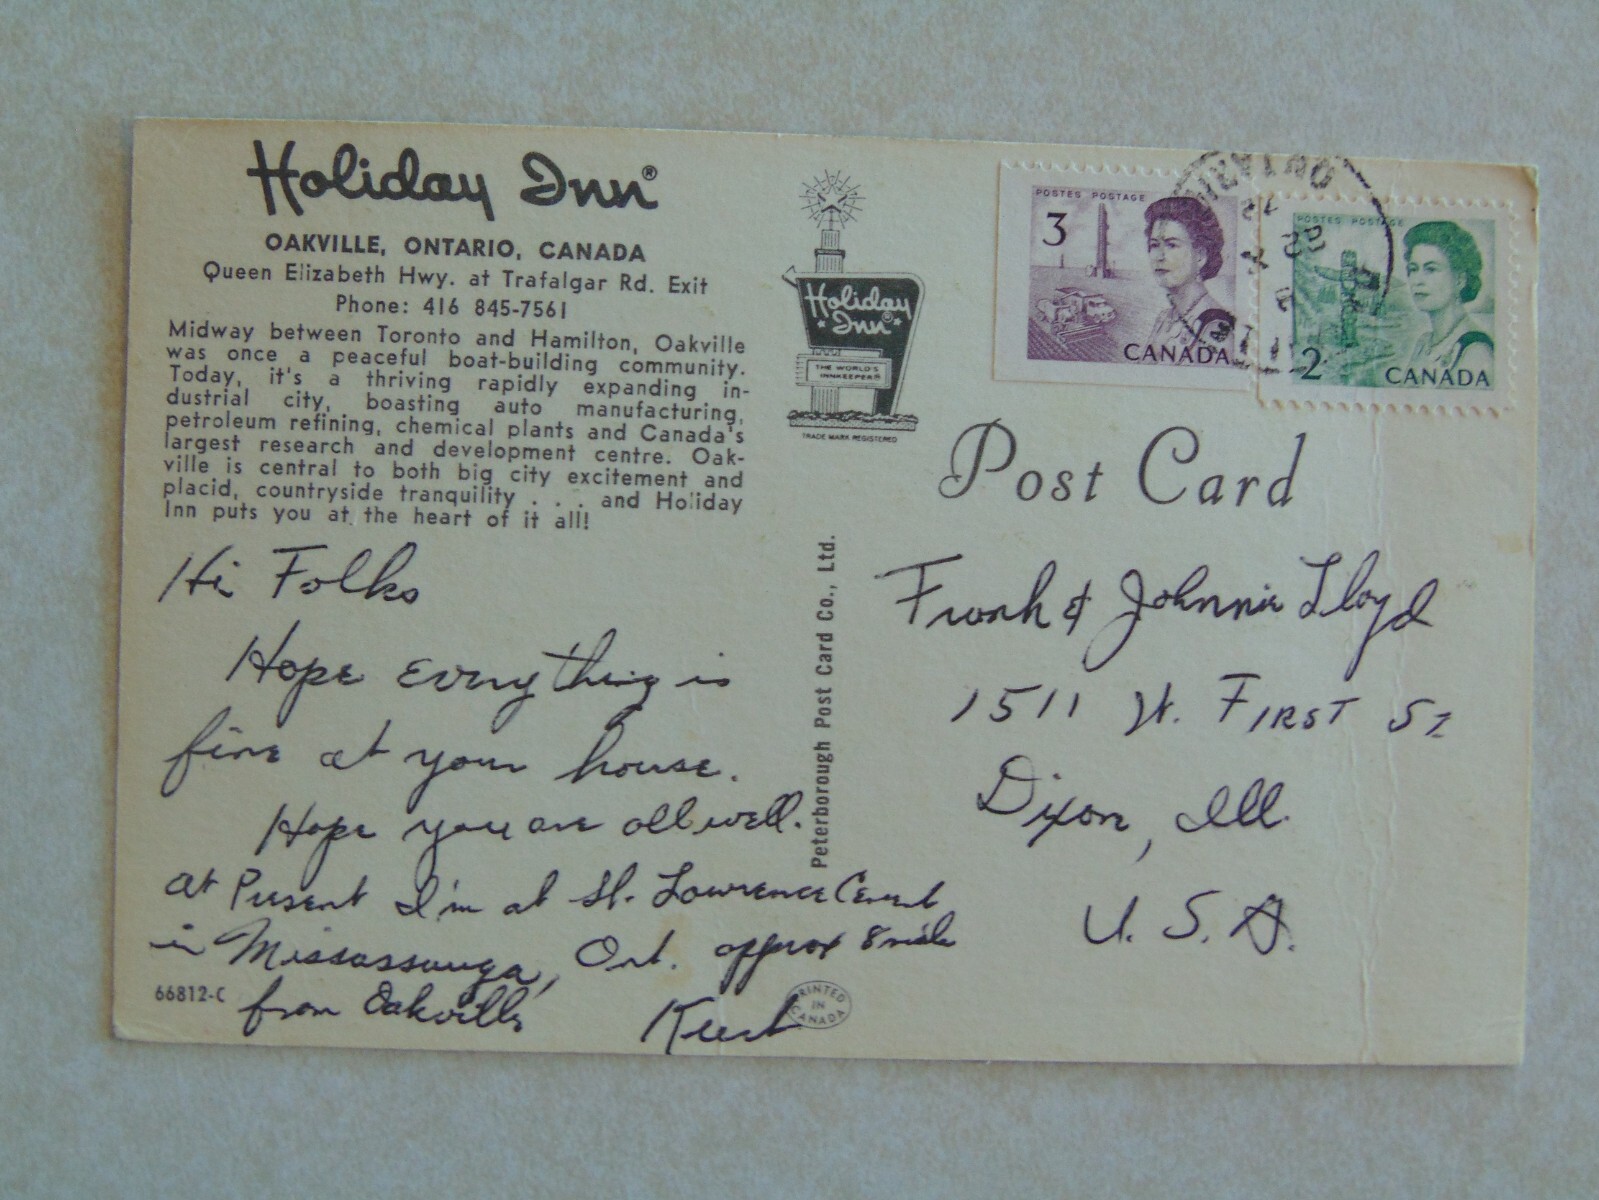 Holiday Inn®
OAKVILLE, ONTARIO, CANADA
Queen Elizabeth Hwy. at Trafalgar Rd. Exit
Phone: 416 845-7561
Midway between Toronto and Hamilton, Oakville
was once a peaceful boat-building community.
Today, it's a thriving rapidly expanding in-
dustrial city, boasting auto manufacturing,
petroleum refining, chemical plants and Canada's
largest research and development centre. Oak-
ville is central to both big city excitement and
placid, countryside tranquility . . . and Holiday
Inn puts you at the heart of it all!
Hi Folks
Hope everything is
fine at your house.
Hope you are all well.
at Present I'm at St. Lawrence Cement
in Mississauga, Ont. approx 8 mile
from Oakville
Kurt
66812-C
PRINTED
IN
CANADA
Holiday
Inn
THE WORLD'S
INNKEEPER®
TRADE MARK REGISTERED
Peterborough Post Card Co., Ltd.
POSTES POSTAGE
3
CANADA
POSTES POSTAGE
2
CANADA
ONTARIO
Post Card
Frank & Johnnie Lloyd
1511 W. FIRST ST
Dixon, Ill.
U. S. A.